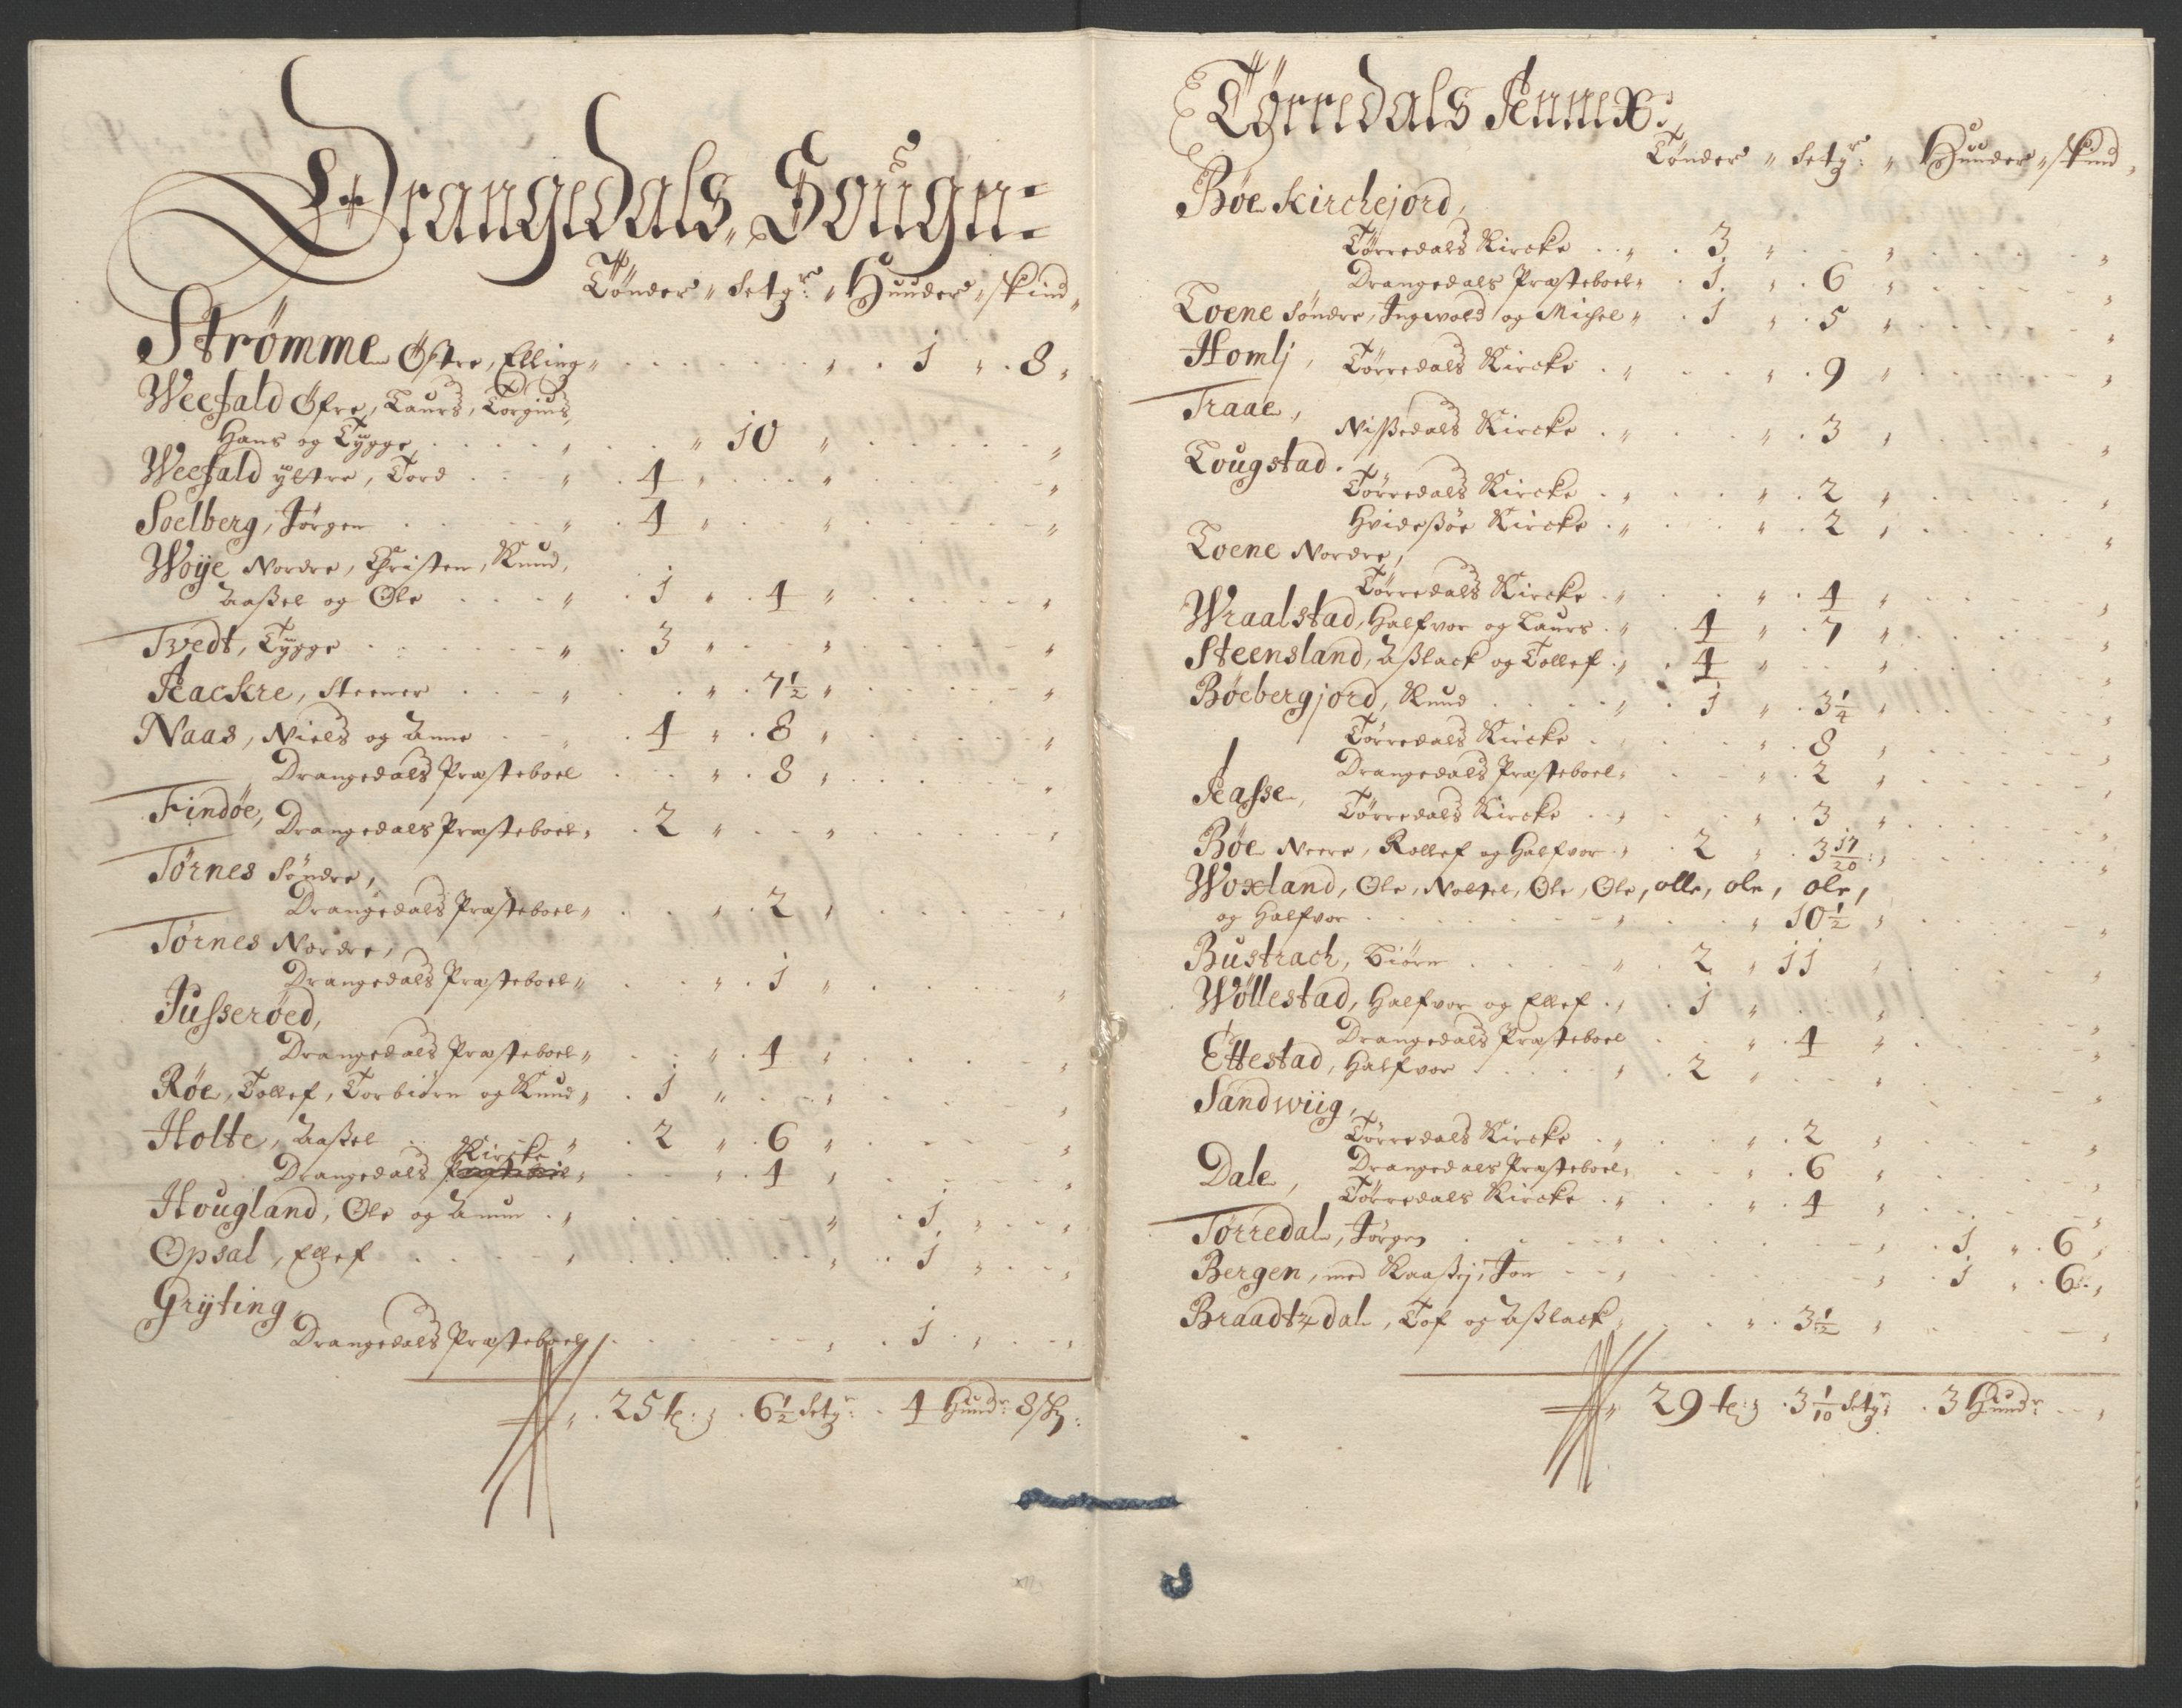 Drangedals Sougn:
Tønder " Setgr: " Huuder " skind
Strømme Østre, Elling " 1 " 8
Weefald Øfre, Laurs, Torgiuls,
Hans og Tygge " 10 "
Weefald yttre, Tord " 4 "
Soelberg, Jørgen " 4 "
Woÿe Nordre, Christen, Knud,
Aaßel og Ole " 1 " 4 "
Tvedt, Tygge " 3 "
Aackre, Steener " 7½ "
Naas, Niels og Anne " 4 " 8 "
Drangedals Præsteboel " 8 "
Findøe, Drangedals Præsteboel " 2 "
Törnes Söndre,
Drangedals Præsteboel " 2 "
Törnes Nordre,
Drangedals Præsteboel " 1 "
Jusseröed,
Drangedals Præsteboel " 4 "
Röe, Tollef, Torbiörn og Knud " 1 "
Holte, Aaßel " 2 " 6 "
Drangedals Kircke " 4 "
Hougland, Ole og Amun " 1 "
Opsal, Ellef " 1 "
Grÿting,
Drangedals Præsteboel " 1 "
25 t: 6½ Setgr: 4 Hundr 8 sk:
Tørredals Annex:
Tønder " Setgr: " Huuder " skind
Böe Kirckejord,
Törredals Kircke " 3 "
Drangedals Præsteboel " 1 " 6 "
Loene Söndre, Ingwold og Michel " 1 " 5 "
Homlj, Törredals Kircke " 9 "
Traae,
Nißedals Kircke " 3 "
Lougstad.
Törredals Kircke " 2 "
Hvideßöe Kircke " 2 "
Loene Nordre,
Törredals Kircke " 4 "
Wraalstad, Halfvor og Laurs " 4 " 7 "
Steensland, Aßlack og Tollef " 4 "
Böebergjord, Knud " 1 " 3¼ "
Törredals Kircke " 8 "
Drangedals Præsteboel " 2 "
Aasse, Törredals Kircke " 3 "
Böe Neere, Rollef og Halfvor " 2 " 3 17/20 "
Woxland, Ole, Ole, Ole, olle, ole, ole,
og Halfvor " 10½ "
Bustrach, Biörn " 2 " 11
Wöllestad, Halfvor og Ellef " 1 "
Drangedals Præsteboel " 4 "
Ettestad, Halfvor " 2 "
Sandwiig,
Törredals Kircke " 2 "
Dale, Drangedals Præsteboel " 6 "
Törredals Kircke " 4 "
Törredal, Jörgen " 1 " 6
Bergen, med Kaaßej, Jon " 1 " 6
Braadtzdal, Tof og Aßlack " 3½ "
29 t: 3 1/10 Setgr: 3 Hundr